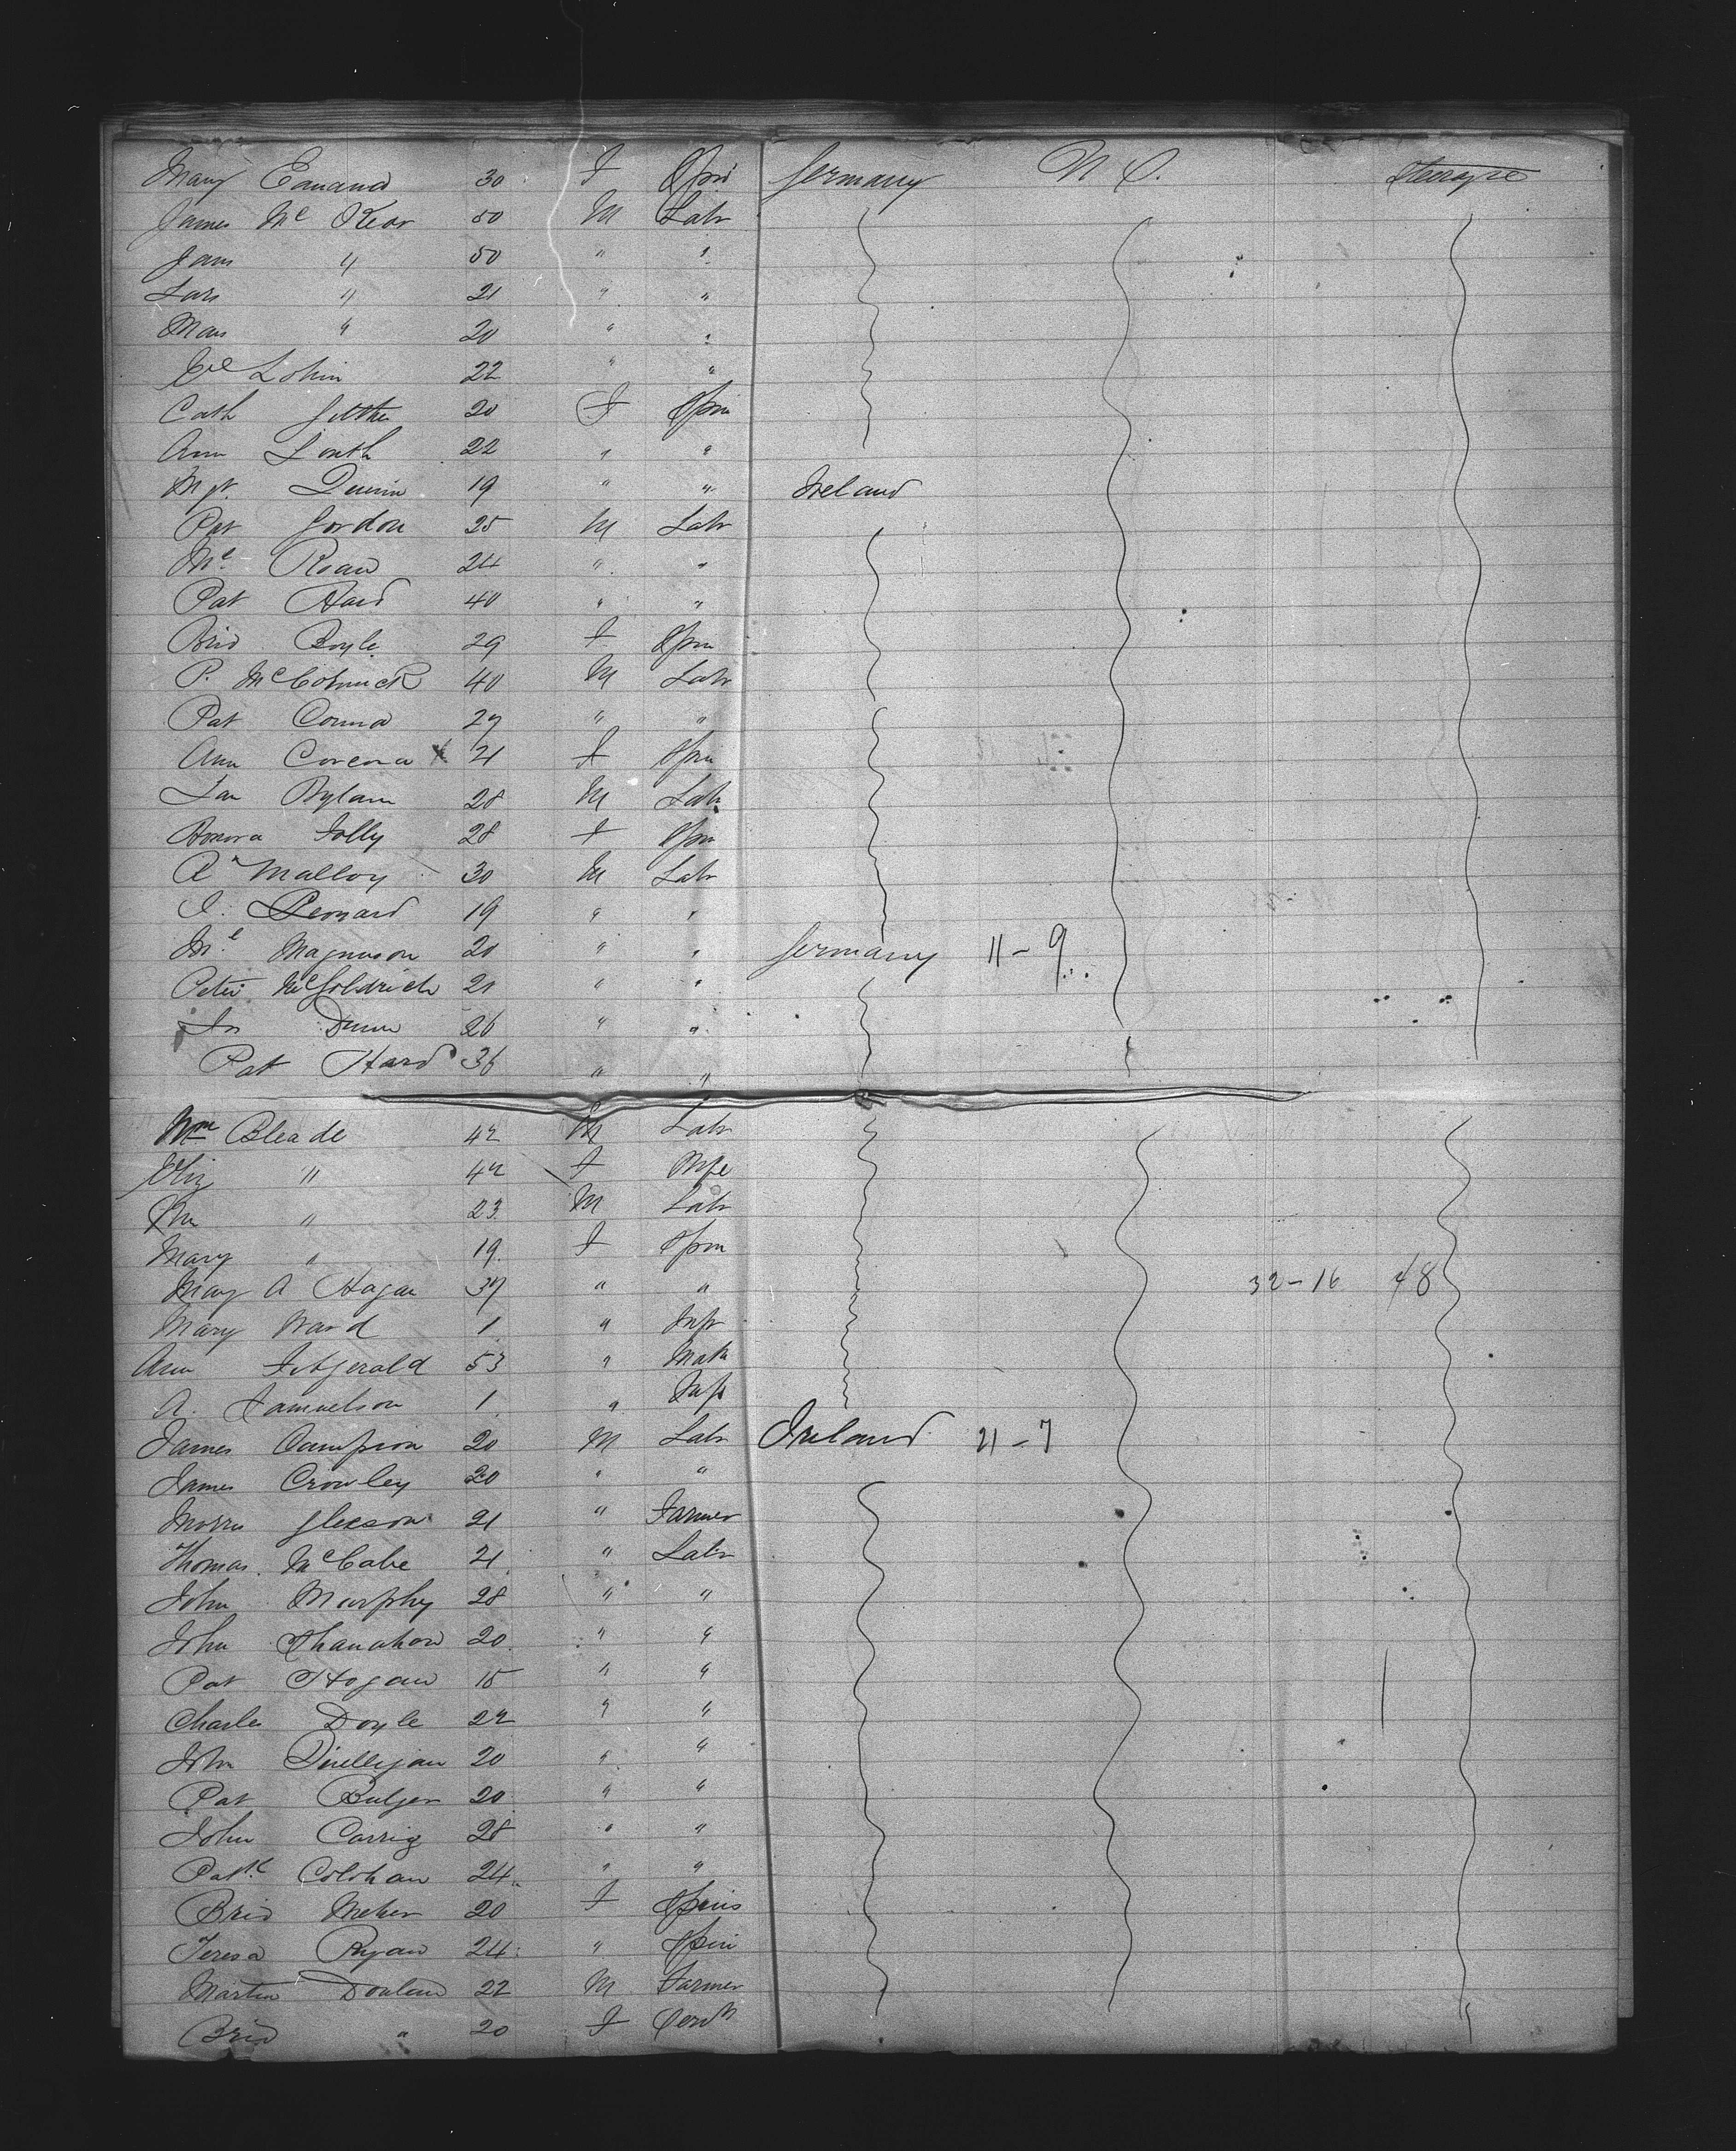 Mary 30 F Spin Germany Steerage
James Mc Kear 50 M Labr
Jam " 50 " "
Lars " 21 " "
Mar " 20 " "
22 " "
Cath 20 F Spin
Ann 22 " "
Mgt. Quinn 19 " " Ireland
Pat Gordon 25 M Labr
Ml Roan 24 " "
Pat Hard 40 " "
Brid Boyle 29 F Spin
P. McCormick 40 M Labr
Pat 27 " "
Ann Corcoran 21 F Spin
28 M Labr
Honora Folly 28 F Spin
Malloy 30 M Labr
Leonard 19 " "
Ml Magnuson 20 " " Germany 11-9
Peter McGoldrick 21 " "
Jn Dunn 26 " "
Pat Hard 36 " "
Wm Bleade 42 M Labr
Eliz " 42 F Wife
Wm " 23 M Labr
Mary " 19 F Spin
Mary A Hagan 37 " " 32-16 48
Mary Ward 1 " Inft
Ann Fitzgerald 53 " Matn
A. Samuelson 1 " Inft
James Campion 20 M Labr Ireland 21-7
James Crowley 20 " "
Morris Gleeson 21 " Farmer
Thomas McCabe 21 " Labr
John Murphy 28 " "
John Shanahan 20 " "
Pat Hogan 15 " "
Charles Doyle 22 " "
John Quilligan 20 " "
Pat Bulger 20 " "
John Carrig 28 " "
Patk Colohan 24 " "
Brid Meher 20 F Spins
Teresa Ryan 24 " Spin
Martin 22 M Farmer
Brid " 20 F